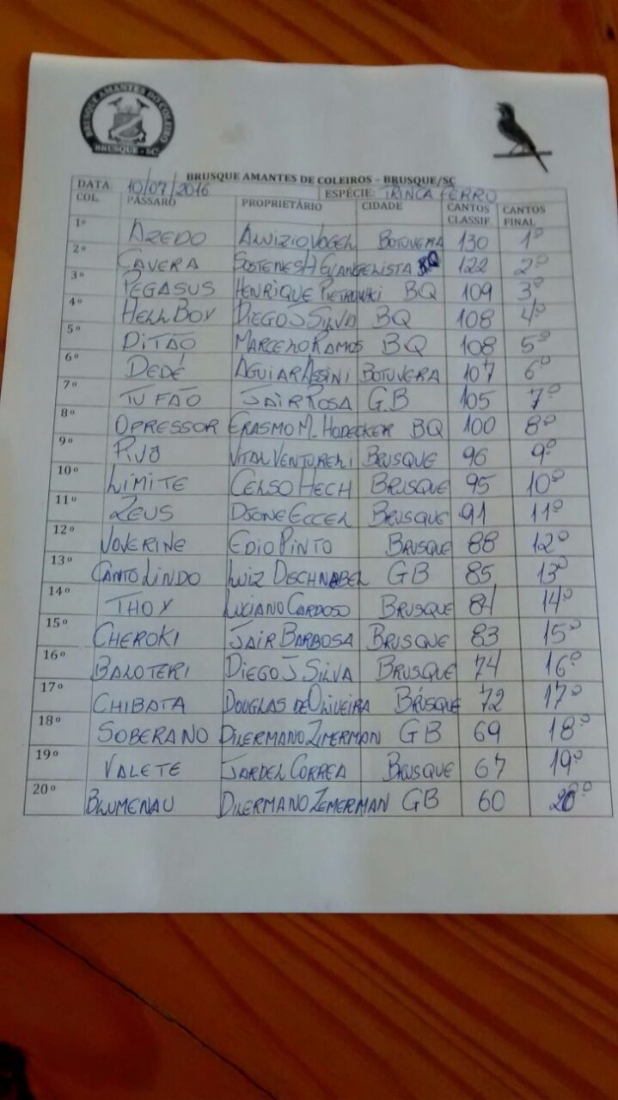 BRUSQUE AMANTES DO COLEIRO
BRUSQUE - SC
BRUSQUE AMANTES DE COLEIROS - BRUSQUE/SC
DATA: 10/07/2016 ESPÉCIE: TRINCA FERRO
COL. PÁSSARO PROPRIETÁRIO CIDADE CANTOS CLASSIF. CANTOS FINAL
1º AZEDO ALVIZIO VOGEL BOTUVERA 130 1º
2º CAVERA SOSTENES H EVANGELISTA BQ 122 2º
3º PEGASUS HENRIQUE PIETROWKI BQ 109 3º
4º HELL BOY DIEGO J SILVA BQ 108 4º
5º DITÃO MARCELO RAMOS BQ 108 5º
6º DEDÉ AGUIAR ASSINI BOTUVERA 107 6º
7º TUFÃO JAIR ROSA GB 105 7º
8º OPRESSOR ERASMO M. HODECKER BQ 100 8º
9º VITAL VENTURELI BRUSQUE 96 9º
10º LIMITE CELSO HECH BRUSQUE 95 10º
11º ZEUS DJONE ECCEL BRUSQUE 91 11º
12º VOVERINE EDIO PINTO BRUSQUE 88 12º
13º CANTO LINDO LUIZ DSCHNABEL GB 85 13º
14º THOY LUCIANO CARDOSO BRUSQUE 84 14º
15º CHEROKI JAIR BARBOSA BRUSQUE 83 15º
16º BALOTERI DIEGO J SILVA BRUSQUE 74 16º
17º CHIBATA DOUGLAS DE OLIVEIRA BRUSQUE 72 17º
18º SOBERANO DILERMANO ZIMERMAN GB 69 18º
19º VALETE JARDEL CORREA BRUSQUE 67 19º
20º BLUMENAU DILERMANO ZEMERMAN GB 60 20º